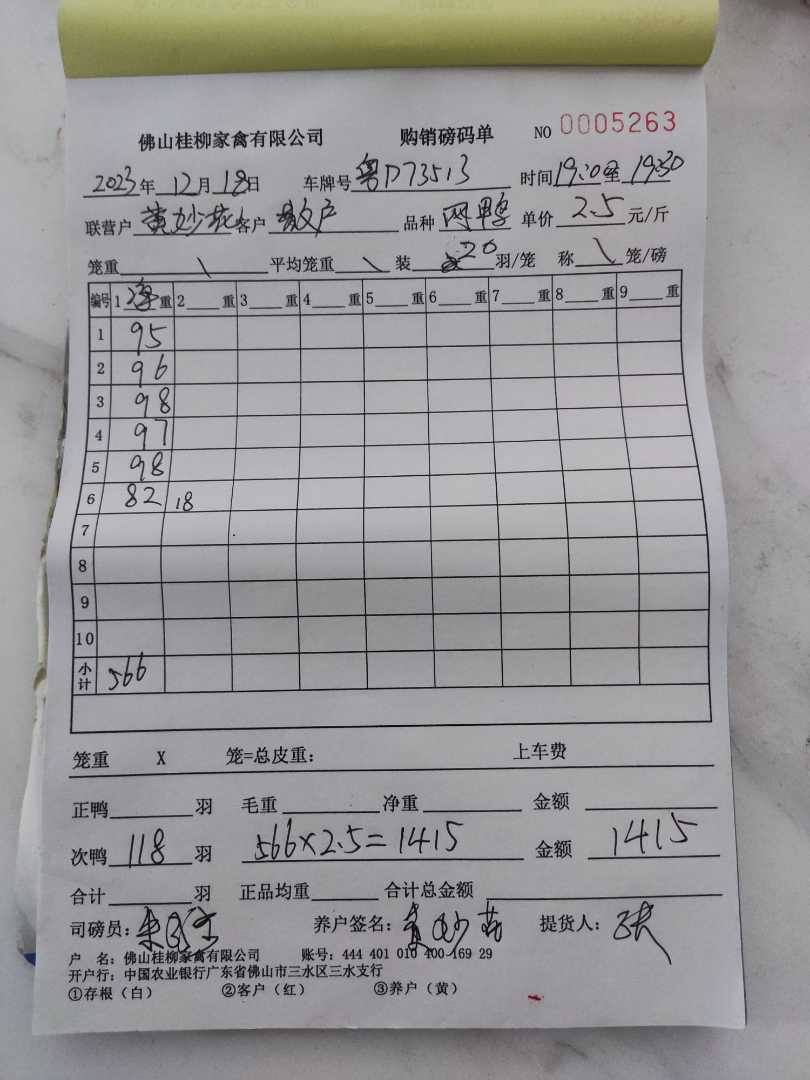 佛山桂柳家禽有限公司 购销磅码单 NO 0005263
2023年 12月 18日 车牌号 粤D73513 时间 19:20至 19:30
联营户 黄妙花 客户 散户 品种 网鸭 单价 2.5 元/斤
笼重 \ 平均笼重 \ 装 20 羽/笼 称 \ 笼/磅
编号 1 净 重 2 重 3 重 4 重 5 重 6 重 7 重 8 重 9 重
1 95
2 96
3 98
4 97
5 98
6 82 18
7
8
9
10
小计 566
笼重 X 笼=总皮重: 上车费
正鸭 羽 毛重 净重 金额
次鸭 118 羽 566×2.5=1415 金额 1415
合计 羽 正品均重 合计总金额
司磅员: 养户签名: 黄妙花 提货人: 张
户 名: 佛山桂柳家禽有限公司 账号: 444 401 010 400 169 29
开户行: 中国农业银行广东省佛山市三水区三水支行
①存根（白） ②客户（红） ③养户（黄）